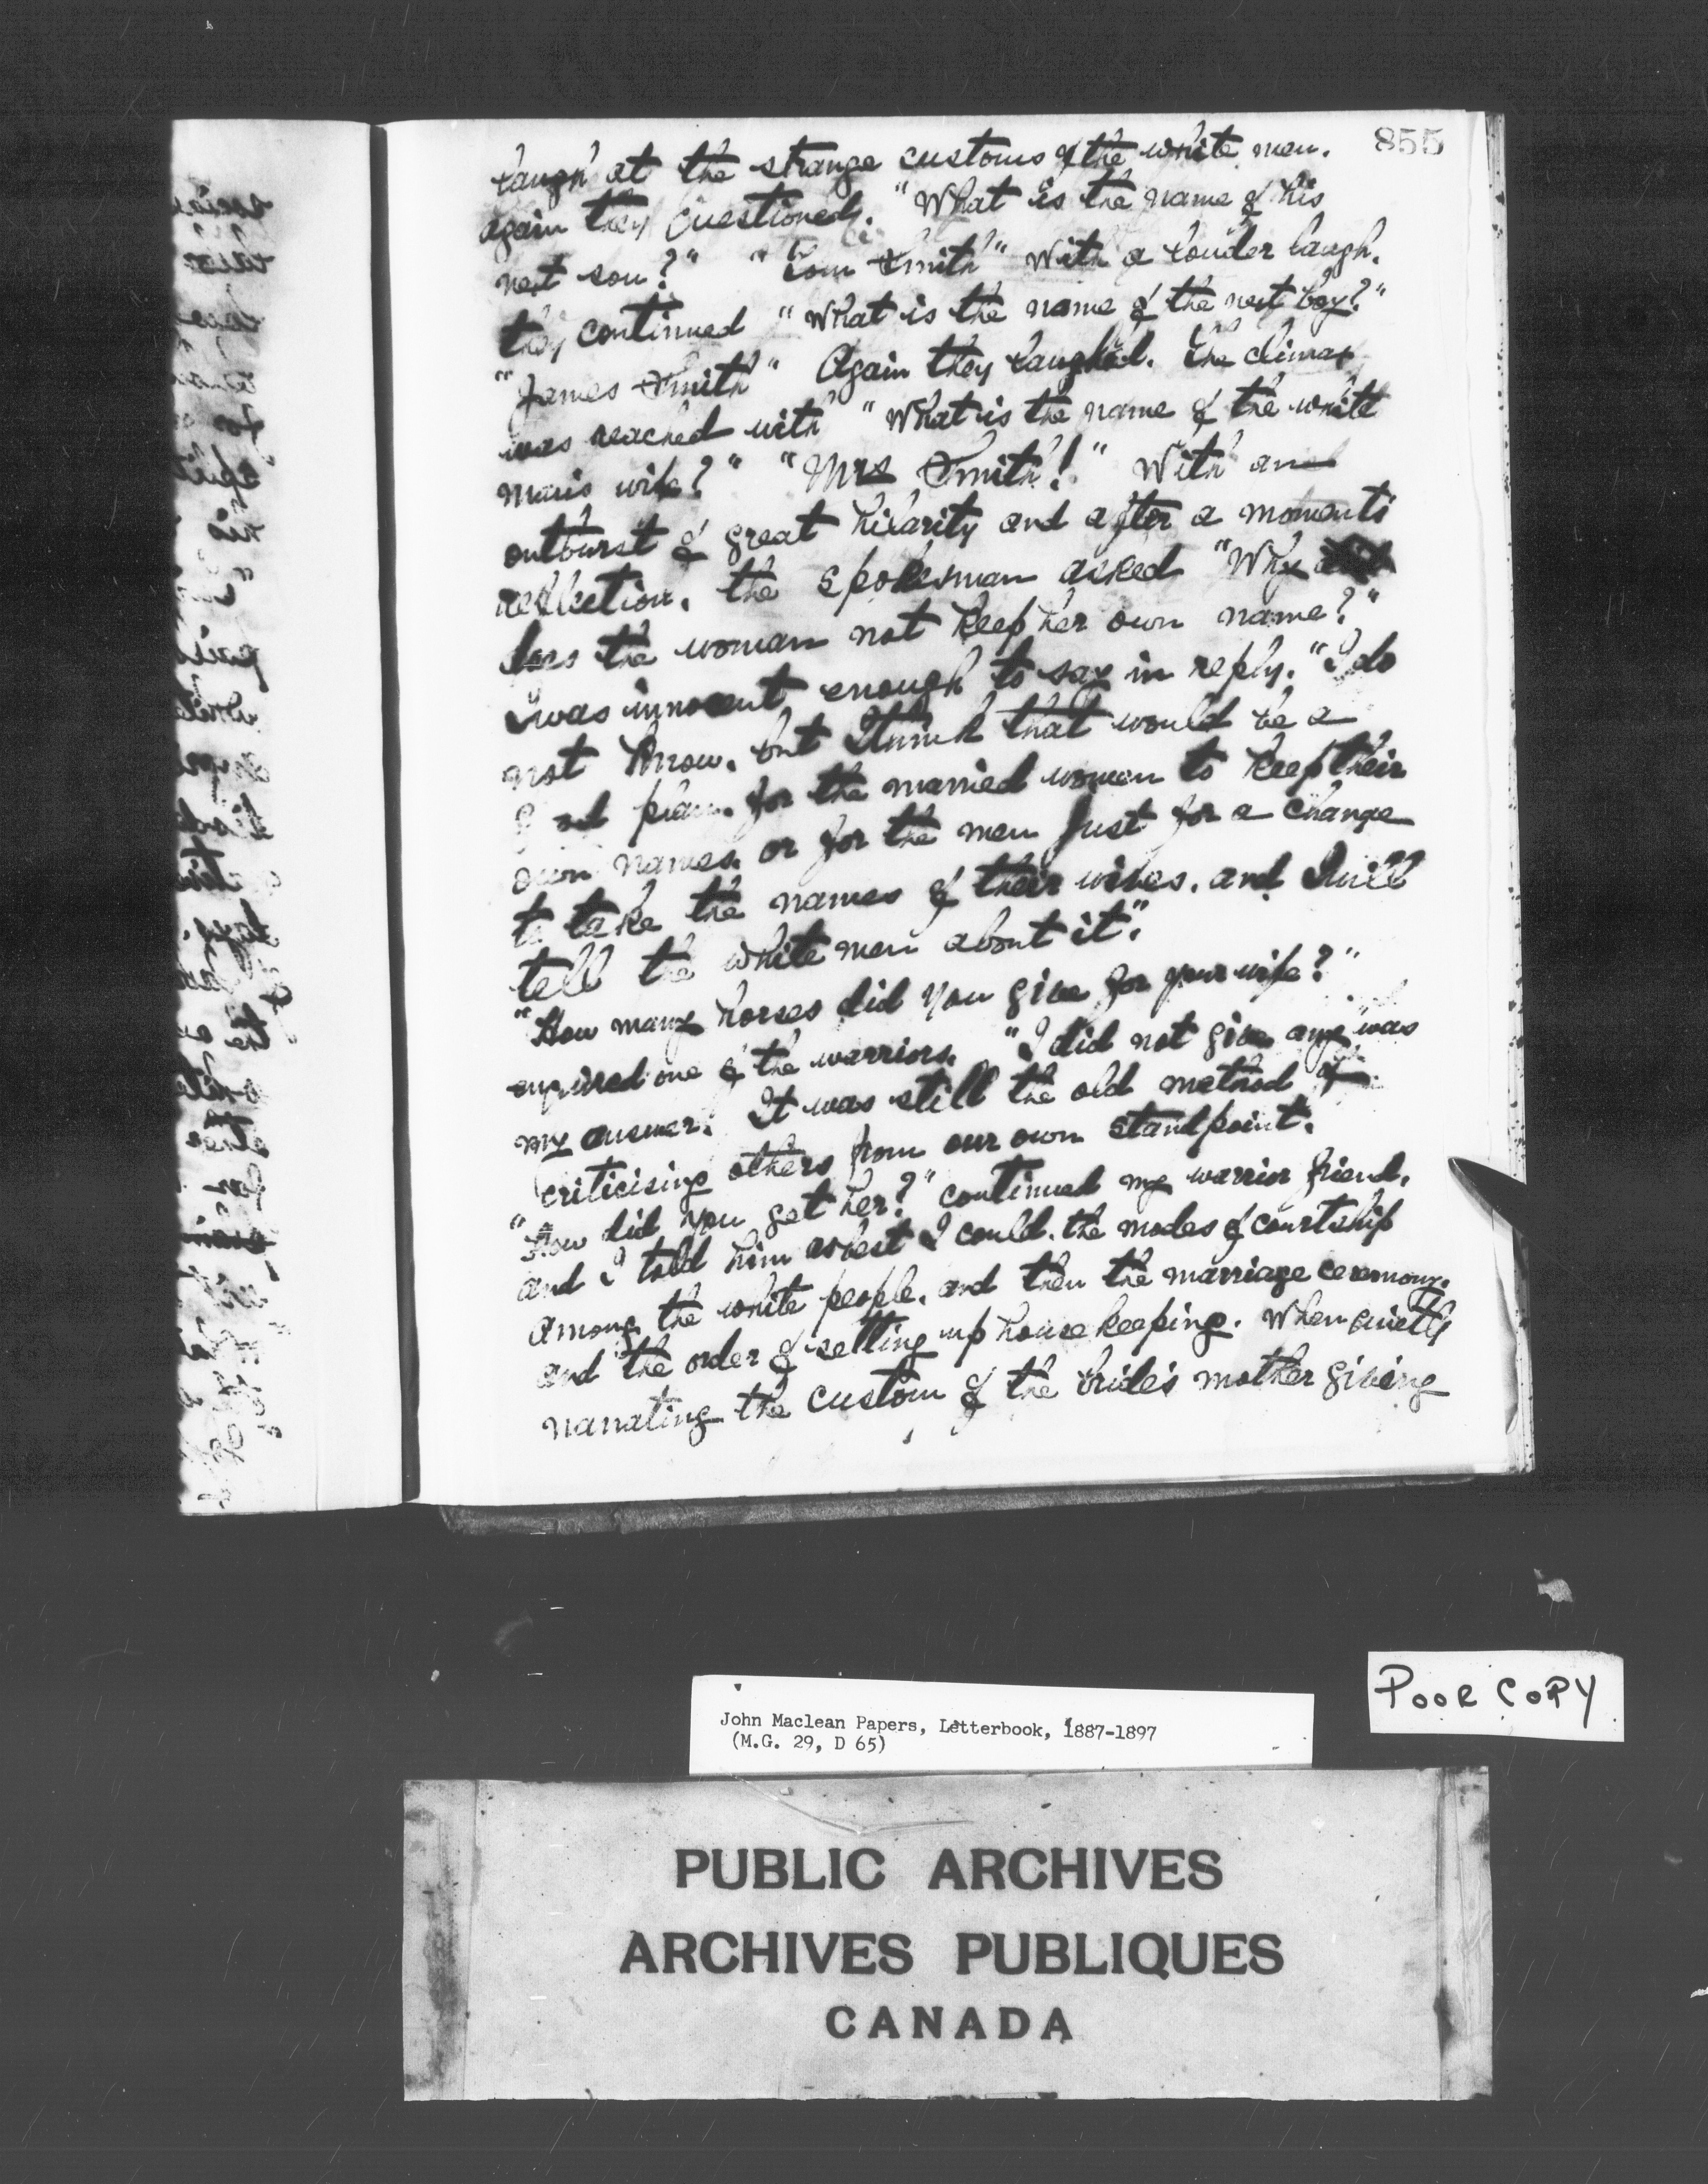 855
laugh at the strange customs of the white men.
again they questioned. "What is the name of his
next son?" "Tom Smith" With a louder laugh.
they continued "What is the name of the next boy?"
"James Smith" Again they laughed. The climax
was reached with "What is the name of the white
man's wife?" "Mrs Smith!" With an
outburst of great hilarity and after a moment's
reflection. the spokesman asked "Why
does the woman not keep her own name?"
I was innocent enough to say in reply. "I do
not know. but I think that would be a
good plan. for the married women to keep their
own names. or for the men just for a change
to take the names of their wives. and I will
tell the white men about it".
"How many horses did you give for your wife?"
enquired one of the warriors. "I did not give any" was
my answer. It was still the old method of
criticising others from our own standpoint.
"How did you get her?" continued my warrior friend.
and I told him as best I could. the modes of courtship
among the white people. and then the marriage ceremony.
and the order of setting up house keeping. When quietly
narrating the custom of the bride's mother giving
POOR COPY
John Maclean Papers, Letterbook, 1887-1897
(M.G. 29, D 65)
PUBLIC ARCHIVES
ARCHIVES PUBLIQUES
CANADA